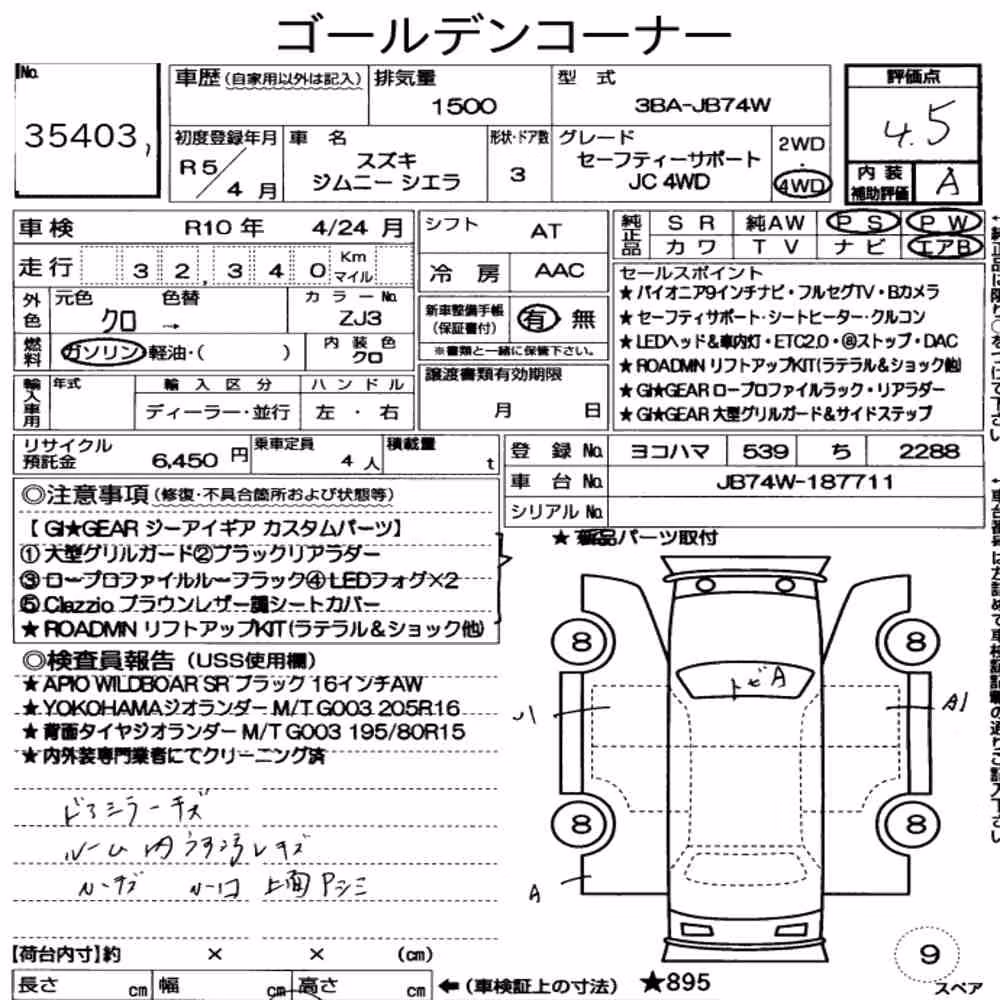 ゴールデンコーナー
No.
35403,
車歴(自家用以外は記入)
排気量
1500
型 式
3BA-JB74W
評価点
4.5
初度登録年月
R5/4月
車 名
スズキ
ジムニー シエラ
形状・ドア数
3
グレード
セーフティーサポート
JC 4WD
2WD
・
4WD
内装
補助評価
A
車検 R10年 4/24月
走行 32,340 Km
マイル
外色
元色 色替
クロ →
カラーNo.
ZJ3
燃料
ガソリン 軽油・( )
内装色
クロ
輸入車用
年式
輸入区分
ディーラー・並行
ハンドル
左・右
シフト AT
冷房 AAC
新車整備手帳
(保証書付)
有・無
※書類と一緒に保管下さい。
譲渡書類有効期限
月 日
純正品
SR 純AW PS PW
カワ TV ナビ エアB
セールスポイント
★パイオニア9インチナビ・フルセグTV・Bカメラ
★セーフティサポート・シートヒーター・クルコン
★LEDヘッド&車内灯・ETC2.0・⑧ストップ・DAC
★ROADMN リフトアップKIT(ラテラル&ショック他)
★GI★GEAR ロープロファイルラック・リアラダー
★GI★GEAR 大型グリルガード&サイドステップ
リサイクル
預託金 6,450円
乗車定員
4人
積載量
t
登録No. ヨコハマ 539 ち 2288
車台No. JB74W-187711
シリアルNo.
◎注意事項(修復・不具合箇所および状態等)
【GI★GEAR ジーアイギア カスタムパーツ】
①大型グリルガード②ブラックリアラダー
③ロープロファイルルーフラック④LEDフォグ×2
⑤Clazzio ブラウンレザー調シートカバー
★ROADMN リフトアップKIT(ラテラル&ショック他)
★新品パーツ取付
◎検査員報告(USS使用欄)
★APIO WILDBOAR SR ブラック 16インチAW
★YOKOHAMAジオランダー M/T G003 205R16
★背面タイヤジオランダー M/T G003 195/80R15
★内外装専門業者にてクリーニング済
ドアミラーキズ
ルーム内
キズ
上面Pシミ
8
8
トビA
A1
8
8
A
9
スペア
【荷台内寸】約 × × (cm)
長さ cm 幅 cm 高さ cm
←(車検証上の寸法)
★895